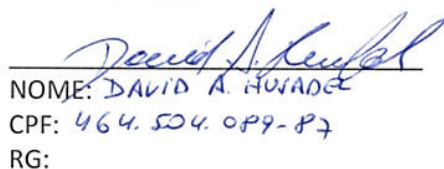 David A. 
NOME: DAVID A. HUSADEL
CPF: 464.504.089-87
RG: